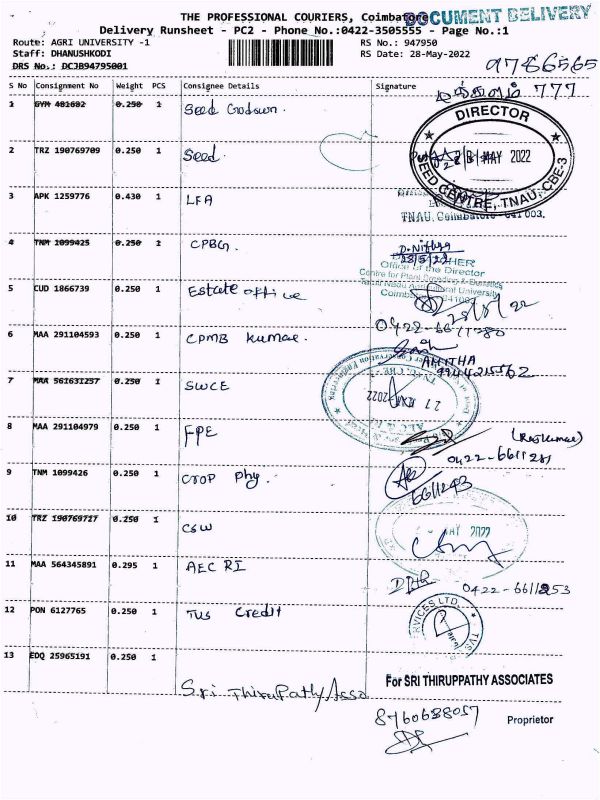 THE PROFESSIONAL COURIERS, Coimbatore
DOCUMENT DELIVERY
Delivery Runsheet - PC2 - Phone No.:0422-3505555 - Page No.:1
Route: AGRI UNIVERSITY -1 RS No.: 947950
Staff: DHANUSHKODI RS Date: 28-May-2022
DRS No.: DCJB94795001
9786565
777
S No Consignment No Weight PCS Consignee Details Signature
1 GYM 481682 0.250 1 Seed Godown.
DIRECTOR
SEED CENTRE, TNAU, CBE-3
MAY 2022
2 TRZ 190769709 0.250 1 Seed.
3 APK 1259776 0.430 1 LFA
TNAU, Coimbatore - 641 003.
4 TNM 1099425 0.250 1 CPBG.
D. Nithya
28/5/22
Office of the Director
Centre for Plant Breeding & Genetics
Tamil Nadu Agricultural University
5 CUD 1866739 0.250 1 Estate office
28/5/22
0422-6611280
6 MAA 291104593 0.250 1 CPMB Kumar.
AMITHA
9944215562
7 MAA 561631257 0.250 1 SWCE
27 MAY 2022
8 MAA 291104979 0.250 1 FPE
(Rajkumar)
0422-6611281
9 TNM 1099426 0.250 1 Crop Phy.
6611243
10 TRZ 190769717 0.250 1 CSW
MAY 2022
11 MAA 564345891 0.295 1 AEC RI
0422-6611253
12 PON 6127765 0.250 1 TVS Credit
SERVICES LTD.
TVS
13 EDQ 25965191 0.250 1
Sri Thirupathy Asso
For SRI THIRUPPATHY ASSOCIATES
8760688057
Proprietor